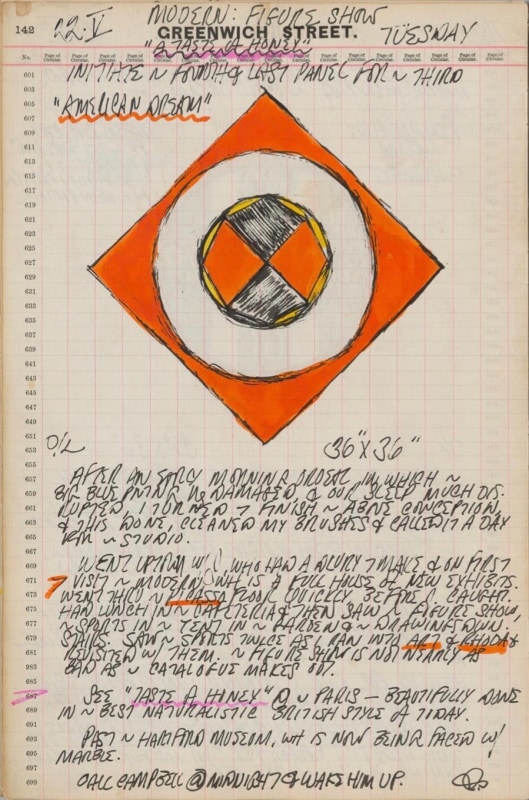 142 22.V MODERN: FIGURE SHOW
GREENWICH STREET. TUESDAY
"A TASTE OF HONEY"
No. Page of Circular. Page of Circular. Page of Circular. Page of Circular. Page of Circular. Page of Circular. Page of Circular. Page of Circular. Page of Circular. Page of Circular.
601 INITIATE ~ FOURTH & LAST PANEL FOR ~ THIRD
603
605 "AMERICAN DREAM"
607
609
611
613
615
617
619
621
623
625
627
629
631
633
635
637
639
641
643
645
647
649
651
653 OIL 36" X 36"
655
657 AFTER AN EARLY MORNING ORDEAL IN WHICH ~
659 BIG BLUE PNTNG WS DAMAGED, & OUR SLEEP MUCH DIS-
661 RUPTED, I TURNED T FINISH ~ ABOVE CONCEPTION,
663 & THIS DONE, CLEANED MY BRUSHES & CALLED IT A DAY
665 ~ STUDIO.
667
669 WENT UPTOWN W/ , WHO HAD A DLVRY T MAKE & ON FIRST
671 VISIT ~ MODERN, WH IS A FULL HOUSE OF NEW EXHIBITS.
673 WENT THRO ~ FLOOR QUICKLY BEFORE CAUGHT.
675 HAD LUNCH IN CAFETERIA & THEN SAW ~ FIGURE SHOW,
677 ~ SPORTS IN ~ TENT IN ~ GARDEN & ~ DRAWINGS DWN.
679 STAIRS. SAW ~ SPORTS TWICE AS I RAN INTO ART & RHODA &
681 REVISTED W/ THEM. ~ FIGURE SHOW IS NOT NEARLY AS
683 BAD AS ~ CATALOGUE MAKES OUT.
685
687 SEE "TASTE A HONEY" @ ~ PARIS — BEAUTIFULLY DONE
689 IN ~ BEST NATURALISTIC BRITISH STYLE OF TODAY.
691
693 PAST ~ HARTFORD MUSEUM, WH IS NOW BEING FACED W/
695 MARBLE.
697
699 CALL CAMPBELL @ MIDNIGHT & WAKE HIM UP.